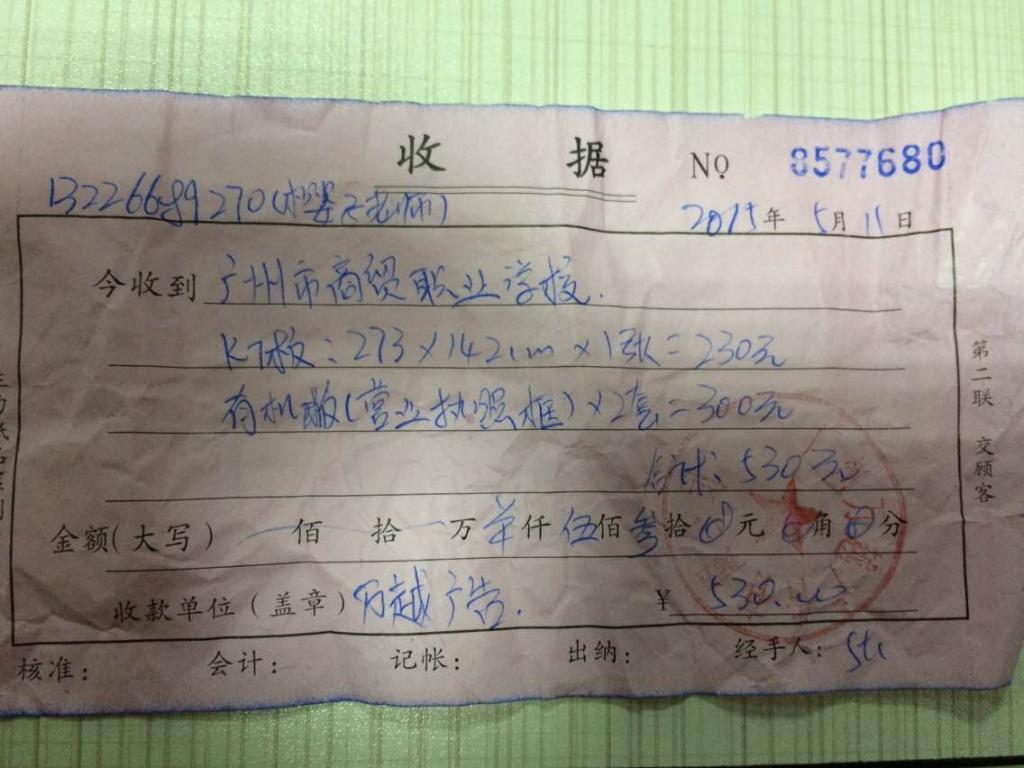 收 据 NO 8577680
13226689270(梁老师)
2015年 5月 11日
今收到 广州市商贸职业学校.
KT板: 273×142cm×1张=230元
有机板(营业执照框)×2套=300元
合计: 530元
金额(大写) 佰 拾 万 仟 伍佰 叁拾 0元 0角 0分
收款单位(盖章) 万越广告.
¥ 530.00
核准: 会计: 记帐: 出纳: 经手人:
第二联 交顾客